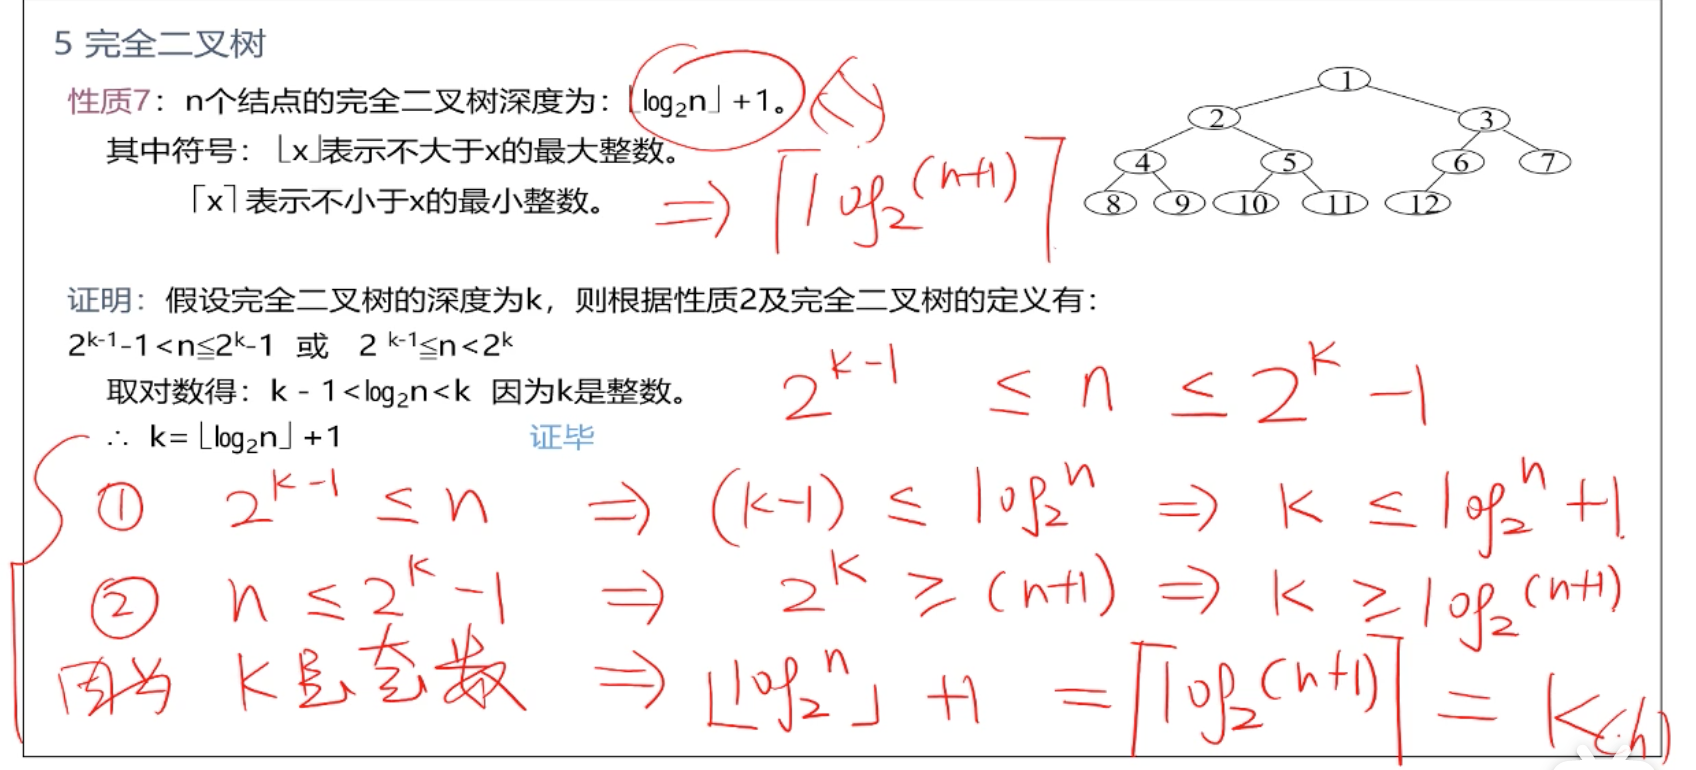 5 完全二叉树
性质7：n个结点的完全二叉树深度为：⌊log₂n⌋+1。
其中符号：⌊x⌋表示不大于x的最大整数。
⌈x⌉表示不小于x的最小整数。
⇒ ⌈log₂(n+1)⌉
1
2 3
4 5 6 7
8 9 10 11 12
证明：假设完全二叉树的深度为k，则根据性质2及完全二叉树的定义有：
2ᵏ⁻¹-1<n≦2ᵏ-1 或 2 ᵏ⁻¹≦n<2ᵏ
取对数得：k - 1<log₂n<k 因为k是整数。
∴ k=⌊log₂n⌋+1 证毕
2ᵏ⁻¹ ≤ n ≤ 2ᵏ -1
① 2ᵏ⁻¹ ≤ n ⇒ (k-1) ≤ log₂n ⇒ k ≤ log₂n +1
② n ≤ 2ᵏ -1 ⇒ 2ᵏ ≥ (n+1) ⇒ k ≥ log₂(n+1)
因为 k是整数 ⇒ ⌊log₂n⌋ +1 = ⌈log₂(n+1)⌉ = k(h)